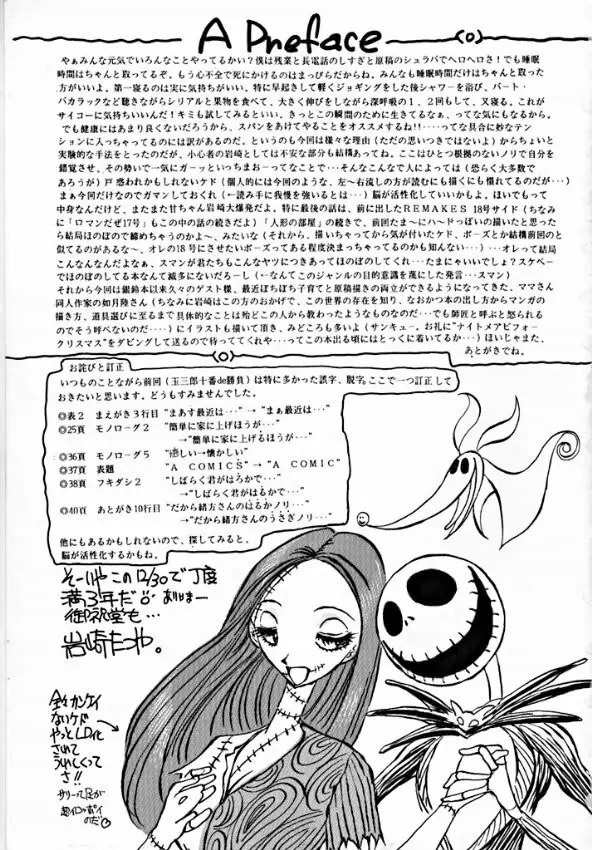 A Preface
やぁみんな元気でいろんなことやってるかい？僕は残業と長電話のしすぎと原稿のシュラバでヘロヘロさ！でも睡眠
時間はちゃんと取ってるぞ。もう心不全で死にかけるのはまっぴらだからね。みんなも睡眠時間だけはちゃんと取った
方がいいよ。第一寝るのは実に気持がいい。特に早起きして軽くジョギングをした後シャワーを浴び、バート・
バカラックなど聴きながらシリアルと果物を食べて、大きく伸びをしながら深呼吸の１、２回もして、又寝る。これが
サイコーに気持ちいいんだ！キミも試してみるといい。きっとこの瞬間のために生きてるなぁ、ってな気にもなるから。
でも健康にはあまり良くないだろうから、スパンをあけてやることをオススメするね!!‥‥って な具合に妙なテン
ションに入っちゃってるのには訳があるのだ。というのも今回は様々な理由（ただの思いつきではないよ）からちょいと
実験的な手法をとったのだが、小心者の岩崎としては不安な部分も結構あってね。ここはひとつ根拠のないノリで自分を
錯覚させ、その勢いで一気にガーッといっちまおーってなことで…そんなこんなで人によっては（恐らく大多数で
あろうが）戸惑われかもしれないケド（個人的には今回のような、左〜右流しの方が読むにも描くにも慣れてるのだが…）
まぁ今回だけなのでガマンしておくれ（←読み手に我慢を強いるとは…）。脳が活性化していいかもよ。ほいでもって
中身なんだけど、またまた甘ちゃん岩崎大爆発だよ。特に最後の話は、前に出したＲＥＭＡＫＥＳ 18号サイド（ちなみ
に「ロマンだぜ17号」もこの中の話の続きだよ）「人形の部屋」の続きで、前回たま〜にハードっぽいの描いたと思った
ら結局ほのぼので締めちゃうのかよ〜、みたいな（それから、描いちゃってから気が付いたケド、ポーズとか結構前回のと
似てるのがあるな〜、オレの18号にさせたいポーズってある程度決まっちゃってるのかも知んない）…オレって結局
こんななんだよなぁ、スマンが君たちもこんなヤツにつきあってほのぼのしてくれ…たまにゃいいでしょ？スケベー
でほのぼのしてる本なんて滅多にないだろーし（←なんてこのジャンルの目的意識を蔑にした発言…スマン）
それから今回は銀鈴本以来久々のゲスト様、最近ぼちぼち子育てと原稿描きの両立ができるようになってきた、ママさん
同人作家の如月陸さん（ちなみに岩崎はこの方のおかげで、この世界の存在を知り、なおかつ本の出し方からマンガの
描き方、道具選びに至るまで具体的なことは殆どこの人から教わったようなものなのだ…でも師匠と呼ぶと怒られる
のでそう呼べないのだ‥‥）にイラストも描いて頂き、みどころも多いよ（サンキュー。お礼に”ナイトメアビフォー
クリスマス”をダビングして送るので待っててくれや…ってこの本出る頃にはとっくに着いてるか…）ほいじゃまた、
あとがきでね。
お詫びと訂正
いつものことながら前回（玉三郎十番de勝負）は特に多かった誤字、脱字。ここで一つ訂正して
おきたいと思います。どうもすみませんでした。
◎表２　まえがき３行目 “まあす最近は…” → “まぁ最近は…”
◎25頁　モノローグ２　“簡単に家に上げほうが…”
→“簡単に家に上げるほうが…”
◎36頁　モノローグ５　→懐かしい”
◎37頁　表題　“Ａ ＣＯＭＩＣＳ” → “Ａ ＣＯＭＩＣ”
◎38頁　フキダシ２　“しばらく君がはろかで…”
→“しばらく君がはるかで…”
◎40頁　あとがき10行目 “だから緒方さんのはるかノリ…”
→“だから緒方さんのうさぎノリ…”
他にもあるかもしれないので、探してみると、
脳が活性化するかもね。
そーいやこの12/30で丁度
満3年だ
岩崎たつや。
全々カンケイ
ないケド
やっとLD化
されて
うれしくって
さ!!
サリーって足が
のだ♡